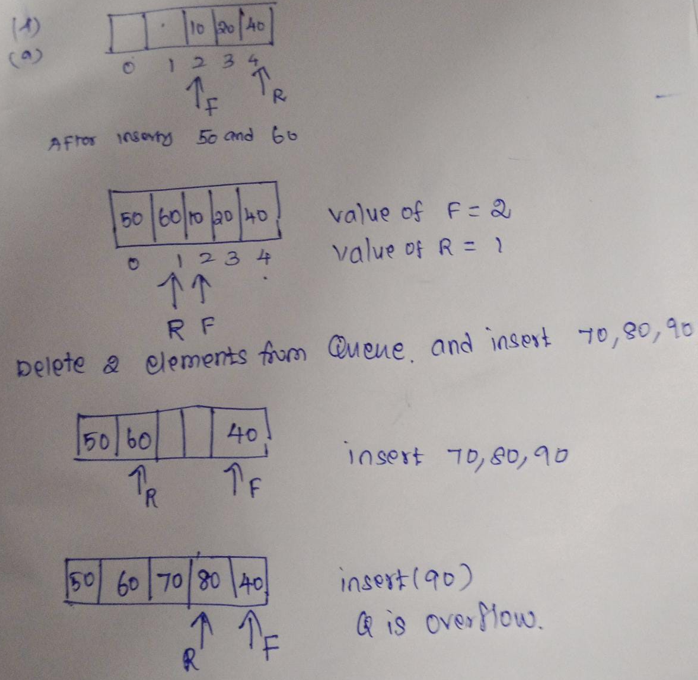 (1)
(a)
10 20 40
0 1 2 3 4
F R
After inserty 50 and 60
50 60 10 20 40
value of F = 2
0 1 2 3 4
value of R = 1
R F
Delete 2 elements from Queue. and insert 70,80,90
50 60 40
insert 70,80,90
R F
50 60 70 80 40
insert(90)
Q is overflow.
R F